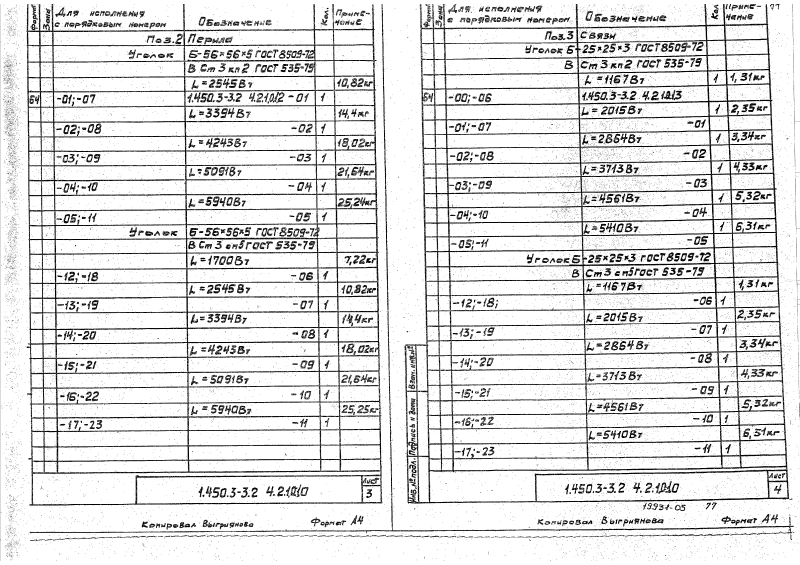 Формат Зона Для исполнения с порядковым номером Обозначение Кол. Примечание
Поз.2 Перила
Уголок Б-56×56×5 ГОСТ 8509-72
В Ст 3 кп2 ГОСТ 535-79
L = 2545 Вт 10,82кг
Б4 -01;-07 1.450.3-3.2 4.2.1.0.12 -01 1
L = 3394 Вт 14,4кг
-02;-08 -02 1
L = 4243 Вт 18,02кг
-03;-09 -03 1
L = 5091 Вт 21,64кг
-04;-10 -04 1
L = 5940 Вт 25,24кг
-05;-11 -05 1
Уголок Б-56×56×5 ГОСТ 8509-72
В Ст 3 сп5 ГОСТ 535-79
L = 1700 Вт 7,22кг
-12;-18 -06 1
L = 2545 Вт 10,82кг
-13;-19 -07 1
L = 3394 Вт 14,4кг
-14;-20 -08 1
L = 4243 Вт 18,02кг
-15;-21 -09 1
L = 5091 Вт 21,64кг
-16;-22 -10 1
L = 5940 Вт 25,25кг
-17;-23 -11 1
1.450.3-3.2 4.2.1.0.10 Лист 3
Копировал Выгриянова Формат А4
Формат Зона Для исполнения с порядковым номером Обозначение Кол. Примечание
Поз.3 Связи
Уголок Б-25×25×3 ГОСТ 8509-72
В Ст 3 кп2 ГОСТ 535-79
L = 1167 Вт 1 1,31кг
Б4 -00;-06 1.450.3-3.2 4.2.1.0.13
L = 2015 Вт 1 2,35кг
-01;-07 -01
L = 2864 Вт 1 3,34кг
-02;-08 -02
L = 3713 Вт 1 4,33кг
-03;-09 -03
L = 4561 Вт 1 5,32кг
-04;-10 -04
L = 5410 Вт 1 6,31кг
-05;-11 -05
Уголок Б-25×25×3 ГОСТ 8509-72
В Ст 3 сп5 ГОСТ 535-79
L = 1167 Вт 1,31кг
-12;-18; -06 1
L = 2015 Вт 2,35кг
-13;-19 -07 1
L = 2864 Вт 3,34кг
-14;-20 -08 1
L = 3713 Вт 4,33кг
-15;-21 -09 1
L = 4561 Вт 5,32кг
-16;-22 -10 1
L = 5410 Вт 6,31кг
-17;-23 -11 1
Инв.№ подл. Подпись и дата Взам. инв.№
1.450.3-3.2 4.2.1.0.10 Лист 4
19931-05 77
Копировал Выгриянова Формат А4